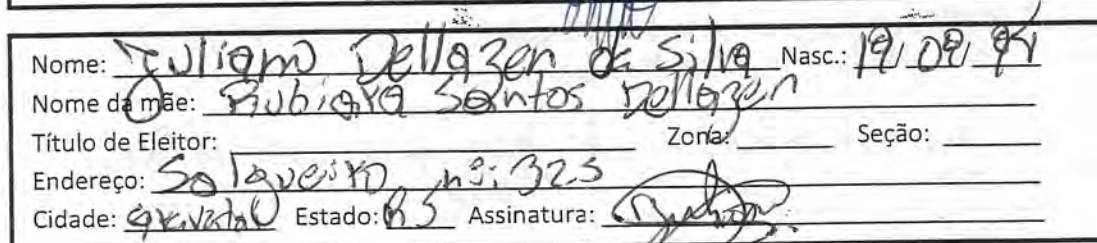 Nome: Juliano Dellazen da Silva Nasc.: 19/09/94
Nome da mãe: Rubiara Santos Dellazen
Título de Eleitor: Zona: Seção:
Endereço: Salgueiro nº: 325
Cidade: Gravataí Estado: RS Assinatura: